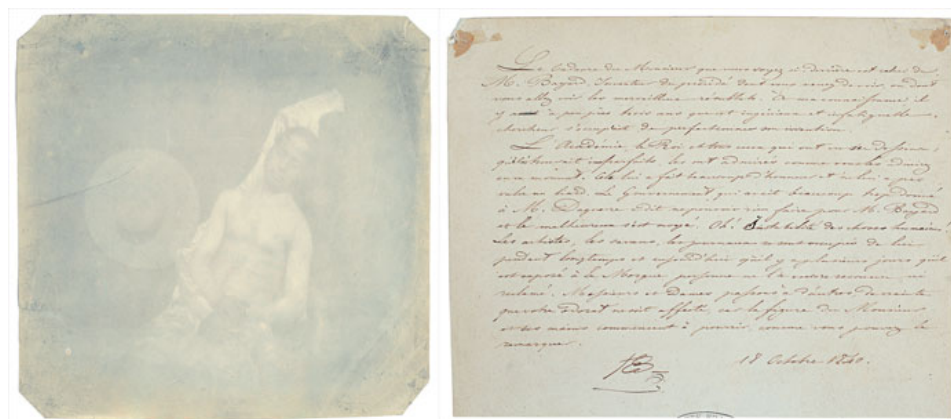 Le cadavre du Monsieur que vous voyez ci-derrière est celui de
M. Bayard, inventeur du procédé dont vous venez de voir, ou dont
vous allez voir les merveilleux résultats. À ma connaissance, il
y a à peu près trois ans que cet ingénieux et infatigable
chercheur s'occupait de perfectionner son invention.
L'Académie, le Roi et tous ceux qui ont vu ses dessins,
imparfaits, les ont admirés comme vous les admirez
en ce moment. Cela lui a fait beaucoup d'honneur et ne lui a pas
valu un liard. Le Gouvernement, qui avait beaucoup trop donné
à M. Daguerre a dit ne pouvoir rien faire pour M. Bayard
et le malheureux s'est noyé. Oh! Instabilité des choses humaines!
Les artistes, les savans, les journaux se sont occupés de lui
pendant longtemps et aujourd'hui qu'il y a plusieurs jours qu'il
est exposé à la Morgue, personne ne l'a encore reconnu ni
réclamé. Messieurs et Dames, passons à d'autres, de crainte
que votre odorat ne soit affecté, car la figure du Monsieur
et ses mains commencent à pourrir comme vous pouvez le
remarquer.
18 Octobre 1840.